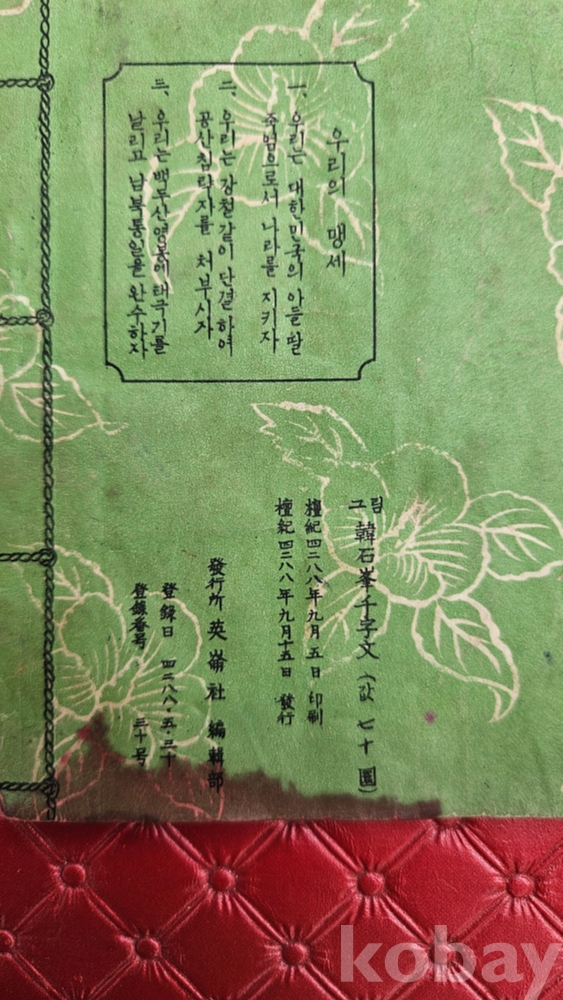 우리의 맹세
一、우리는 대한민국의 아들 딸
죽엄으로서 나라를 지키자
二、우리는 강철같이 단결하여
공산침략자를 쳐부시자
三、우리는 백두산영봉에 태극기를
날리고 남북통일을 완수하자
그림 韓石峯千字文 (값 七十圜)
檀紀四二八八年九月五日 印刷
檀紀四二八八年九月十五日 發行
發行所 英崙社 編輯部
登錄日 四二八八·五·三十
登錄番号 三十号
kobay